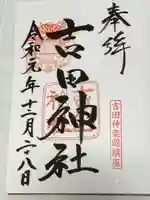 奉拝
吉田神楽岡鎮座
吉田神社
令和元年十二月二八日